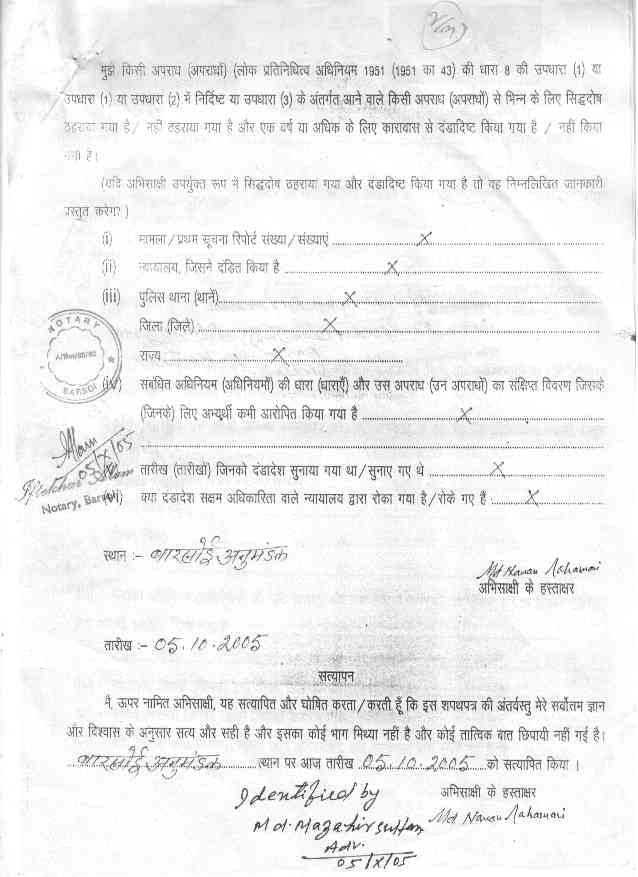 मुझे किसी अपराध (अपराधों) (लोक प्रतिनिधित्व अधिनियम 1951 (1951 का 43) की धारा 8 की उपधारा (1) या
उपधारा (1) या उपधारा (2) में निर्दिष्ट या उपधारा (3) के अंतर्गत आने वाले किसी अपराध (अपराधों) से भिन्न के लिए सिद्धदोष
ठहराया गया है / नहीं ठहराया गया है और एक वर्ष या अधिक के लिए कारावास से दंडादिष्ट किया गया है / नहीं किया
गया है।
(यदि अभिसाक्षी उपर्युक्त रूप में सिद्धदोष ठहराया गया और दंडादिष्ट किया गया है तो वह निम्नलिखित जानकारी
प्रस्तुत करेगा? )
(i) मामला / प्रथम सूचना रिपोर्ट संख्या / संख्याएं ........ X ........
(ii) न्यायालय, जिसने दंडित किया है ........ X ........
(iii) पुलिस थाना (थानें)........ X ........
जिला (जिले) ........ X ........
राज्य ........ X ........
NOTARY
BARSOI
(iv) संबंधित अधिनियम (अधिनियमों) की धारा (धाराएँ) और उस अपराध (उन अपराधों) का संक्षिप्त विवरण जिसके
(जिनके) लिए अभ्यर्थी कभी आरोपित किया गया है ........ X ........
Alam
05/X/05
तारीख (तारीखों) जिनको दंडादेश सुनाया गया था / सुनाए गए थे ........ X ........
Notary, Barsoi
(vi) क्या दंडादेश सक्षम अधिकारिता वाले न्यायालय द्वारा रोका गया है / रोके गए हैं ........ X ........
स्थान :- बारसोई अनुमंडल
अभिसाक्षी के हस्ताक्षर
तारीख :- 05.10.2005
सत्यापन
मै, ऊपर नामित अभिसाक्षी, यह सत्यापित और घोषित करता / करती हूँ कि इस शपथपत्र की अंतर्वस्तु मेरे सर्वोतम ज्ञान
और विश्वास के अनुसार सत्य और सही है और इसका कोई भाग मिथ्या नहीं है और कोई तात्विक बात छिपायी नहीं गई है।
बारसोई अनुमंडल ........ स्थान पर आज तारीख 05.10.2005 ....को सत्यापित किया ।
अभिसाक्षी के हस्ताक्षर
Identified by
Md.
Adv.
05/X/05